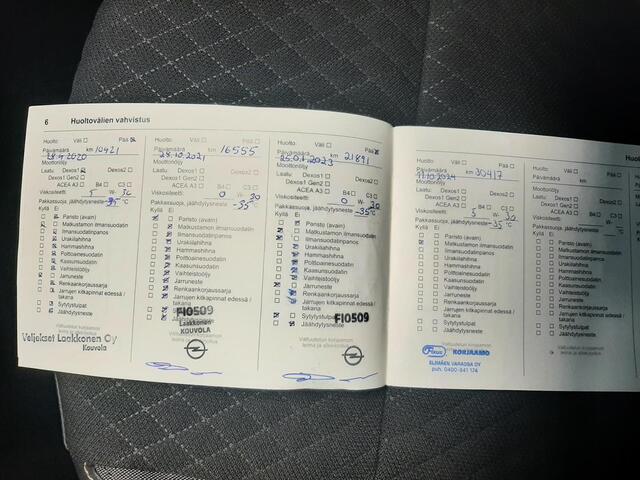 6 Huoltovälien vahvistus
Huolto: Väli Pää
Päivämäärä km 10421
28.4.2020
Moottoriöljy
Laatu: Dexos1 Dexos2
Dexos1 Gen2
ACEA A3 B4 C3
Viskositeetti: 5 W- 30
Pakkassuoja, jäähdytysneste -35 °C
Kyllä Ei
Paristo (avain)
Matkustamon ilmansuodatin
Ilmansuodatinpanos
Urakiilahihna
Hammashihna
Polttoainesuodatin
Kaasunsuodatin
Vaihteistoöljy
Jarruneste
Renkaankorjaussarja
Jarrujen kitkapinnat edessä /
takana
Sytytystulpat
Jäähdytysneste
Valtuutetun korjaamon
leima ja allekirjoitus
Veljekset Laakkonen Oy
Kouvola
Huolto: Väli Pää
Päivämäärä km 16555
28.10.2021
Moottoriöljy
Laatu: Dexos1 Dexos2
Dexos1 Gen2
ACEA A3 B4 C3
Viskositeetti: 0 W- 30
Pakkassuoja, jäähdytysneste -35 °C
Kyllä Ei
Paristo (avain)
Matkustamon ilmansuodatin
Ilmansuodatinpanos
Urakiilahihna
Hammashihna
Polttoainesuodatin
Kaasunsuodatin
Vaihteistoöljy
Jarruneste
Renkaankorjaussarja
Jarrujen kitkapinnat edessä /
takana
Sytytystulpat
Jäähdytysneste
FI0509
Laakkonen
KOUVOLA
Huolto: Väli Pää
Päivämäärä km 21891
Moottoriöljy
Laatu: Dexos1 Dexos2
Dexos1 Gen2
ACEA A3 B4 C3
Viskositeetti: 0 W- 20
Pakkassuoja, jäähdytysneste -35 °C
Kyllä Ei
Paristo (avain)
Matkustamon ilmansuodatin
Ilmansuodatinpanos
Urakiilahihna
Hammashihna
Polttoainesuodatin
Kaasunsuodatin
Vaihteistoöljy
Jarruneste
Renkaankorjaussarja
Jarrujen kitkapinnat edessä /
takana
Sytytystulpat
Jäähdytysneste
FI0509
Valtuutetun korjaamon
leima ja allekirjoitus
Huolto: Väli Pää
Päivämäärä km 30417
Moottoriöljy
Laatu: Dexos1 Dexos2
Dexos1 Gen2
ACEA A3 B4 C3
Viskositeetti: 5 W- 30
Pakkassuoja, jäähdytysneste -35 °C
Kyllä Ei
Paristo (avain)
Matkustamon ilmansuodatin
Ilmansuodatinpanos
Urakiilahihna
Hammashihna
Polttoainesuodatin
Kaasunsuodatin
Vaihteistoöljy
Jarruneste
Renkaankorjaussarja
Jarrujen kitkapinnat edessä /
takana
Sytytystulpat
Jäähdytysneste
Valtuutetun korjaamon
leima ja allekirjoitus
Fixus KORJAAMO
ELIMÄEN VARAOSA OY
puh. 0400-841 174
Huolto: Väli
Päivämäärä
Moottoriöljy
Laatu: Dexos1
Dexos1 Gen2
ACEA A3
Viskositeetti:
Pakkassuoja, jäähdytysneste
Kyllä Ei
Paristo (avain)
Matkustamon
Ilmansuodatinpanos
Urakiilahihna
Hammashihna
Polttoainesuodatin
Kaasunsuodatin
Vaihteistoöljy
Jarruneste
Renkaankorjaussarja
Jarrujen kitkapinnat
takana
Sytytystulpat
Jäähdytysneste